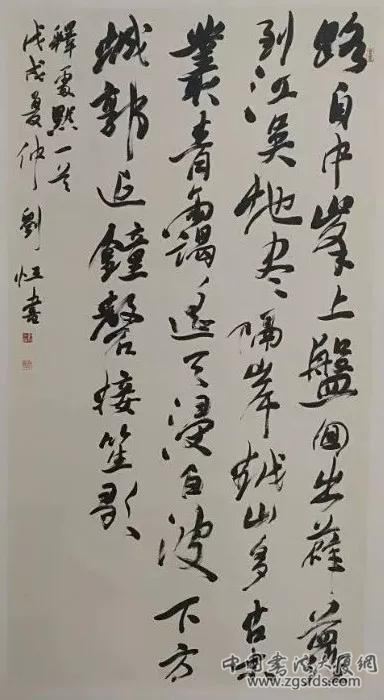 路自中峯上盤回出薜蘿
到江吳地尽隔岸越山多古木
叢青靄遙天浸白波下方
城郭近鐘磬接笙歌
釋處默一首
戊戌夏仲劉恒書
www.zgsfds.com